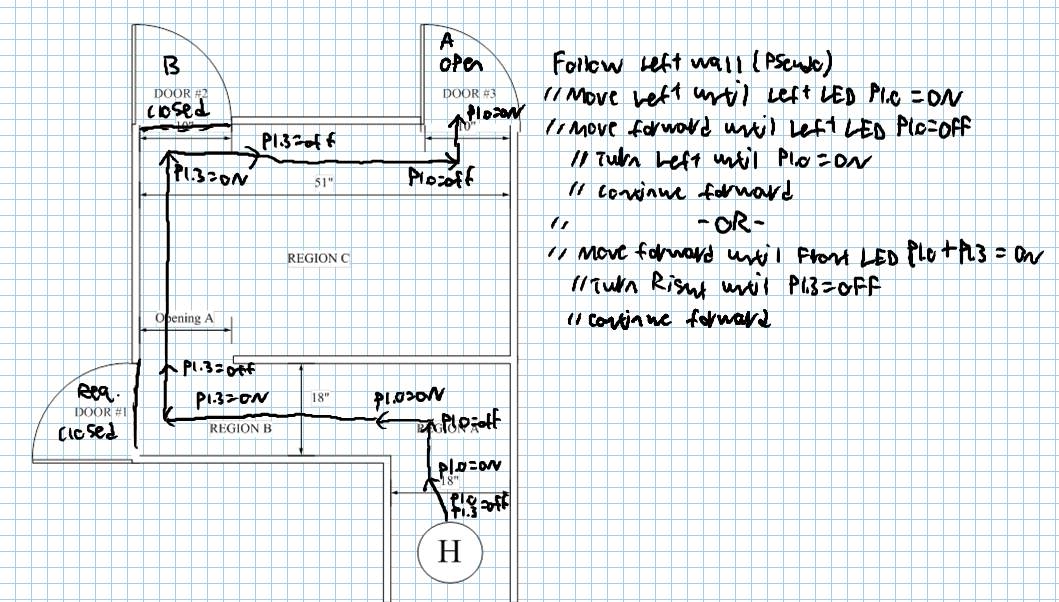 A
open
B
DOOR #2
closed
10"
DOOR #3
P1.0=ON
10"
P1.3=off
P1.3=ON
P1.0=off
51"
REGION C
Opening A
P1.3=off
Req.
DOOR #1
closed
P1.3=ON
18"
P1.0=ON
REGION B
P1.0=off
REGION A
P1.0=ON
18"
P1.0
P1.3 =off
H
Follow Left wall (Pseudo)
// Move Left until Left LED P1.0 = ON
// Move forward until Left LED P1.0=OFF
// Turn Left until P1.0 = ON
// Continue forward
// -OR-
// Move forward until Front LED P1.0 + P1.3 = ON
// Turn Right until P1.3=OFF
// Continue forward